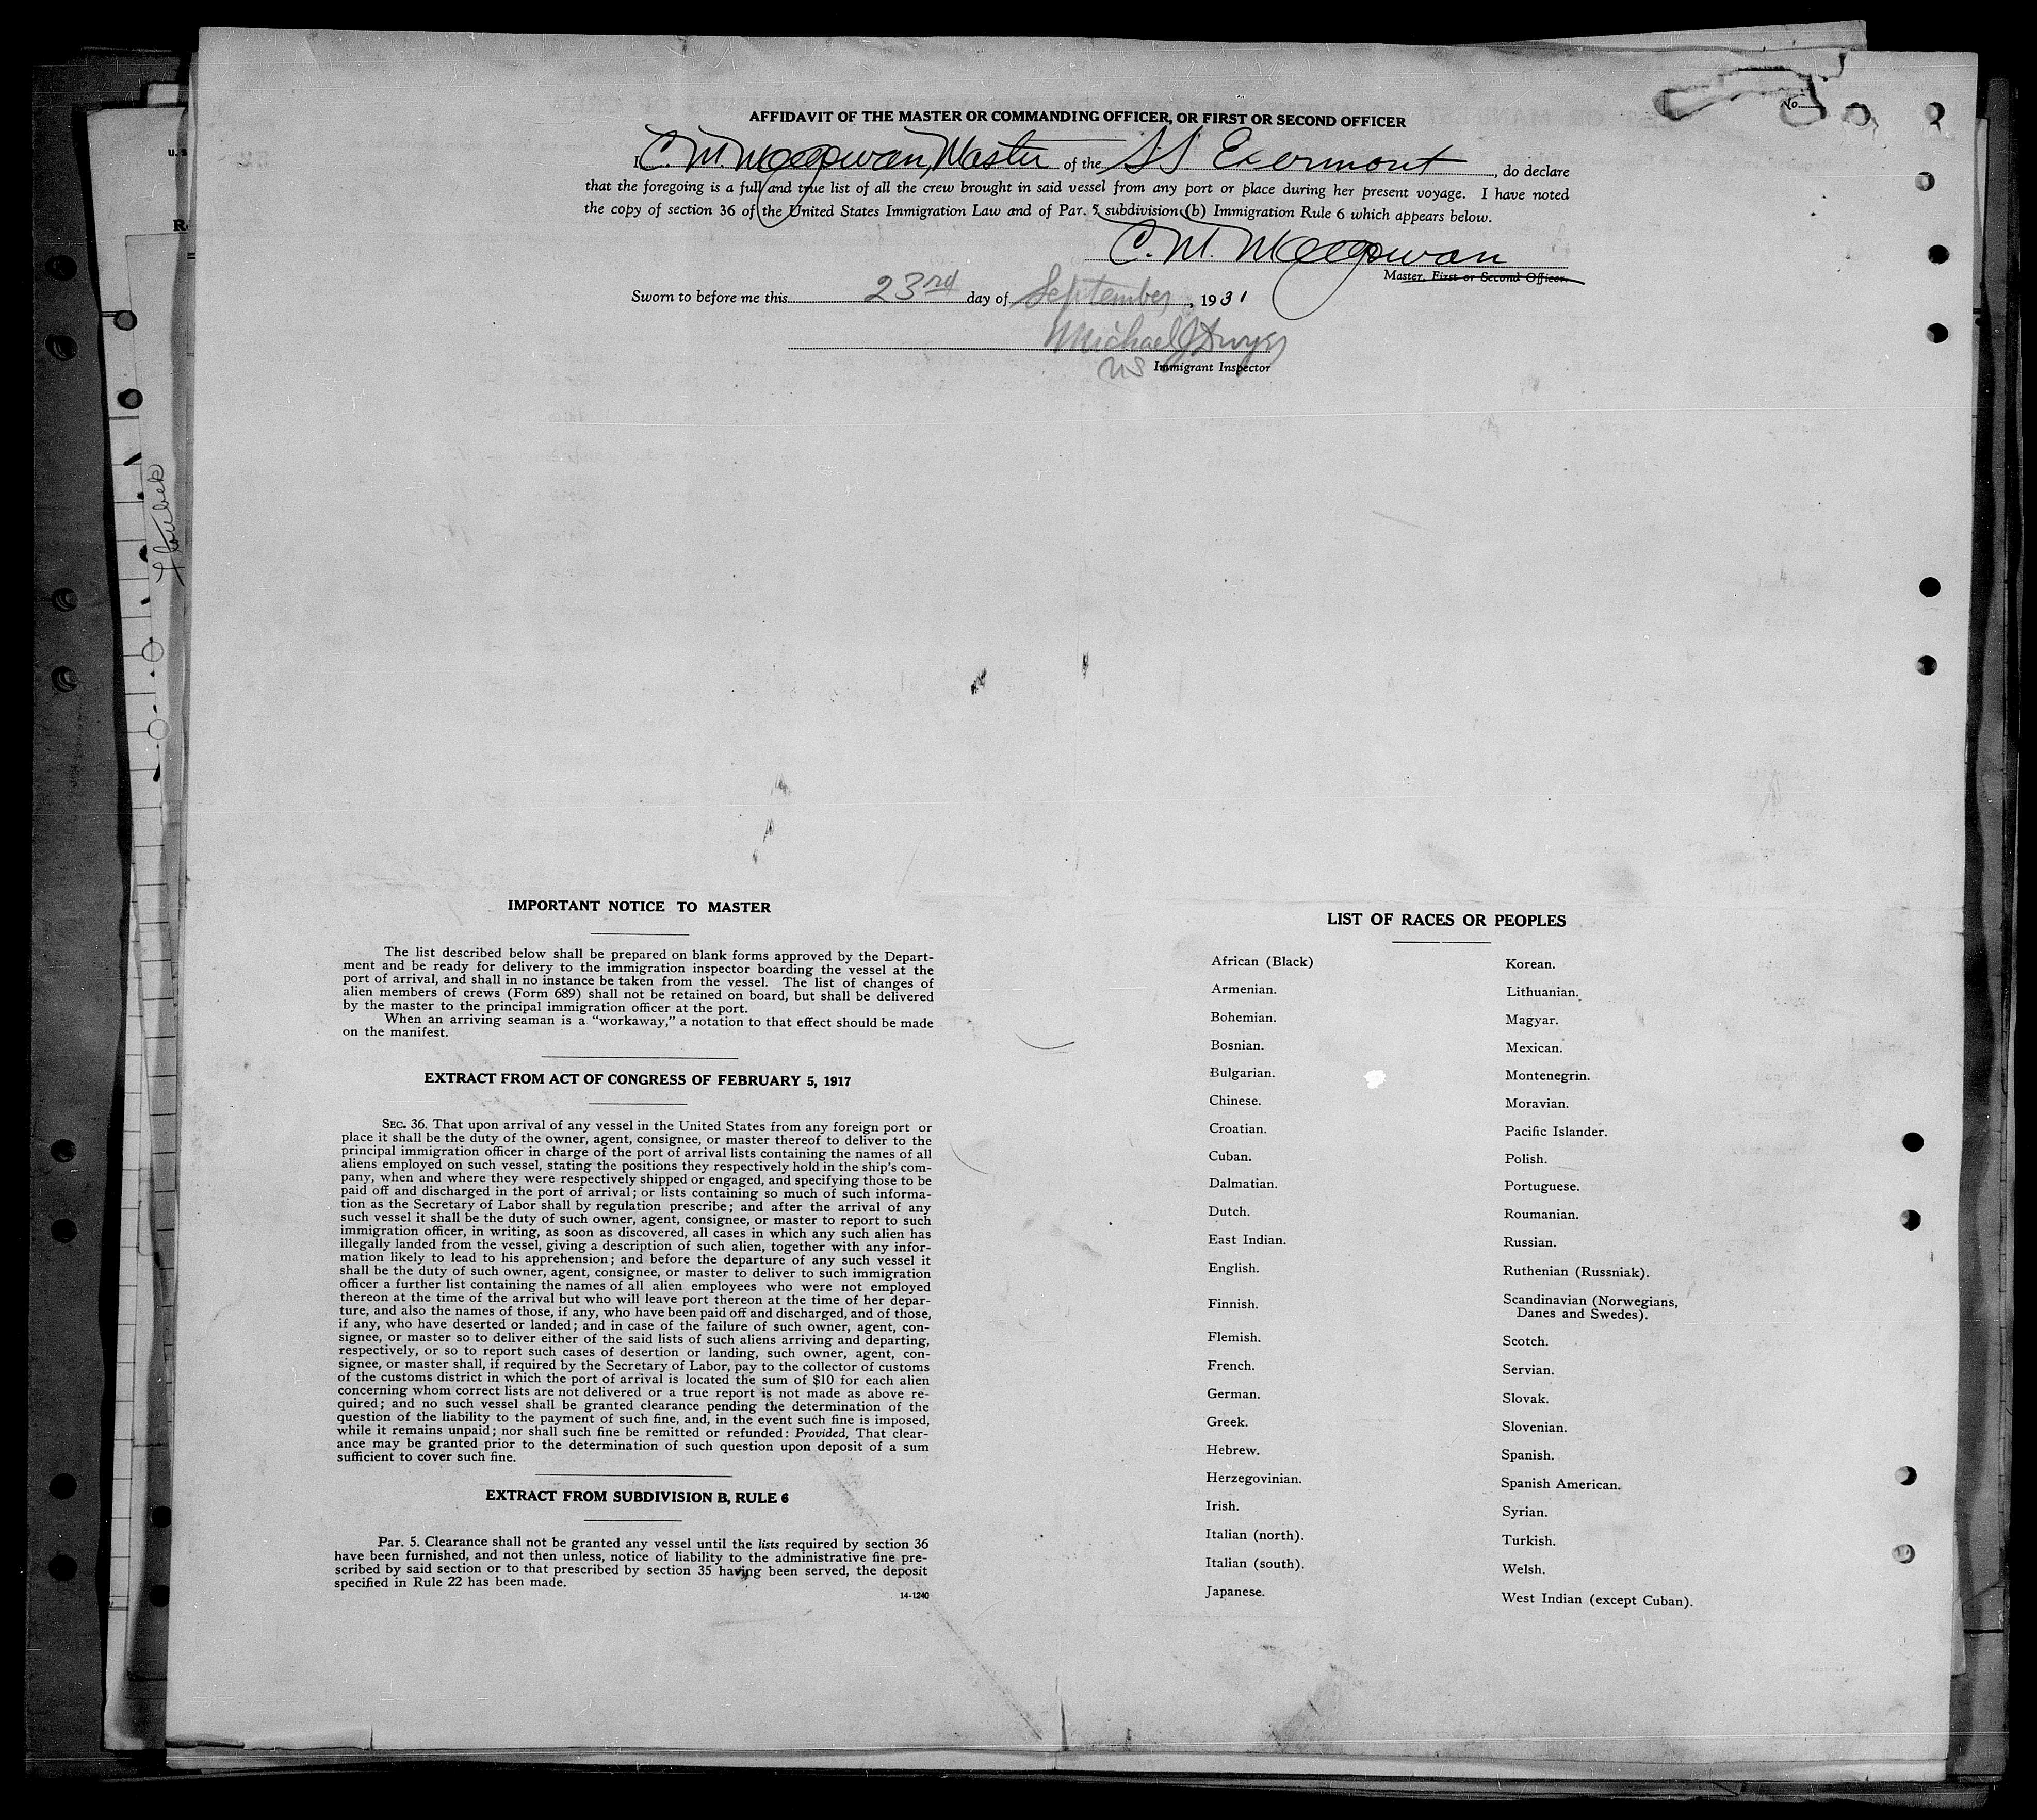 No.
AFFIDAVIT OF THE MASTER OR COMMANDING OFFICER, OR FIRST OR SECOND OFFICER
I, C. M. McGowan, Master of the SS. Exermont, do declare
that the foregoing is a full and true list of all the crew brought in said vessel from any port or place during her present voyage. I have noted
the copy of section 36 of the United States Immigration Law and of Par. 5 subdivision (b) Immigration Rule 6 which appears below.
C. M. McGowan
Master, First or Second Officer.
Sworn to before me this 23rd day of September, 1931
Michael J Dwyer
US Immigrant Inspector
IMPORTANT NOTICE TO MASTER
The list described below shall be prepared on blank forms approved by the Depart-
ment and be ready for delivery to the immigration inspector boarding the vessel at the
port of arrival, and shall in no instance be taken from the vessel. The list of changes of
alien members of crews (Form 689) shall not be retained on board, but shall be delivered
by the master to the principal immigration officer at the port.
When an arriving seaman is a "workaway," a notation to that effect should be made
on the manifest.
EXTRACT FROM ACT OF CONGRESS OF FEBRUARY 5, 1917
SEC. 36. That upon arrival of any vessel in the United States from any foreign port or
place it shall be the duty of the owner, agent, consignee, or master thereof to deliver to the
principal immigration officer in charge of the port of arrival lists containing the names of all
aliens employed on such vessel, stating the positions they respectively hold in the ship's com-
pany, when and where they were respectively shipped or engaged, and specifying those to be
paid off and discharged in the port of arrival; or lists containing so much of such informa-
tion as the Secretary of Labor shall by regulation prescribe; and after the arrival of any
such vessel it shall be the duty of such owner, agent, consignee, or master to report to such
immigration officer, in writing, as soon as discovered, all cases in which any such alien has
illegally landed from the vessel, giving a description of such alien, together with any infor-
mation likely to lead to his apprehension; and before the departure of any such vessel it
shall be the duty of such owner, agent, consignee, or master to deliver to such immigration
officer a further list containing the names of all alien employees who were not employed
thereon at the time of the arrival but who will leave port thereon at the time of her depar-
ture, and also the names of those, if any, who have been paid off and discharged, and of those,
if any, who have deserted or landed; and in case of the failure of such owner, agent, con-
signee, or master so to deliver either of the said lists of such aliens arriving and departing,
respectively, or so to report such cases of desertion or landing, such owner, agent, con-
signee, or master shall, if required by the Secretary of Labor, pay to the collector of customs
of the customs district in which the port of arrival is located the sum of $10 for each alien
concerning whom correct lists are not delivered or a true report is not made as above re-
quired; and no such vessel shall be granted clearance pending the determination of the
question of the liability to the payment of such fine, and, in the event such fine is imposed,
while it remains unpaid; nor shall such fine be remitted or refunded: Provided, That clear-
ance may be granted prior to the determination of such question upon deposit of a sum
sufficient to cover such fine.
EXTRACT FROM SUBDIVISION B, RULE 6
Par. 5. Clearance shall not be granted any vessel until the lists required by section 36
have been furnished, and not then unless, notice of liability to the administrative fine pre-
scribed by said section or to that prescribed by section 35 having been served, the deposit
specified in Rule 22 has been made.
14-1240
LIST OF RACES OR PEOPLES
African (Black)
Armenian.
Bohemian.
Bosnian.
Bulgarian.
Chinese.
Croatian.
Cuban.
Dalmatian.
Dutch.
East Indian.
English.
Finnish.
Flemish.
French.
German.
Greek.
Hebrew.
Herzegovinian.
Irish.
Italian (north).
Italian (south).
Japanese.
Korean.
Lithuanian.
Magyar.
Mexican.
Montenegrin.
Moravian.
Pacific Islander.
Polish.
Portuguese.
Roumanian.
Russian.
Ruthenian (Russniak).
Scandinavian (Norwegians,
Danes and Swedes).
Scotch.
Servian.
Slovak.
Slovenian.
Spanish.
Spanish American.
Syrian.
Turkish.
Welsh.
West Indian (except Cuban).